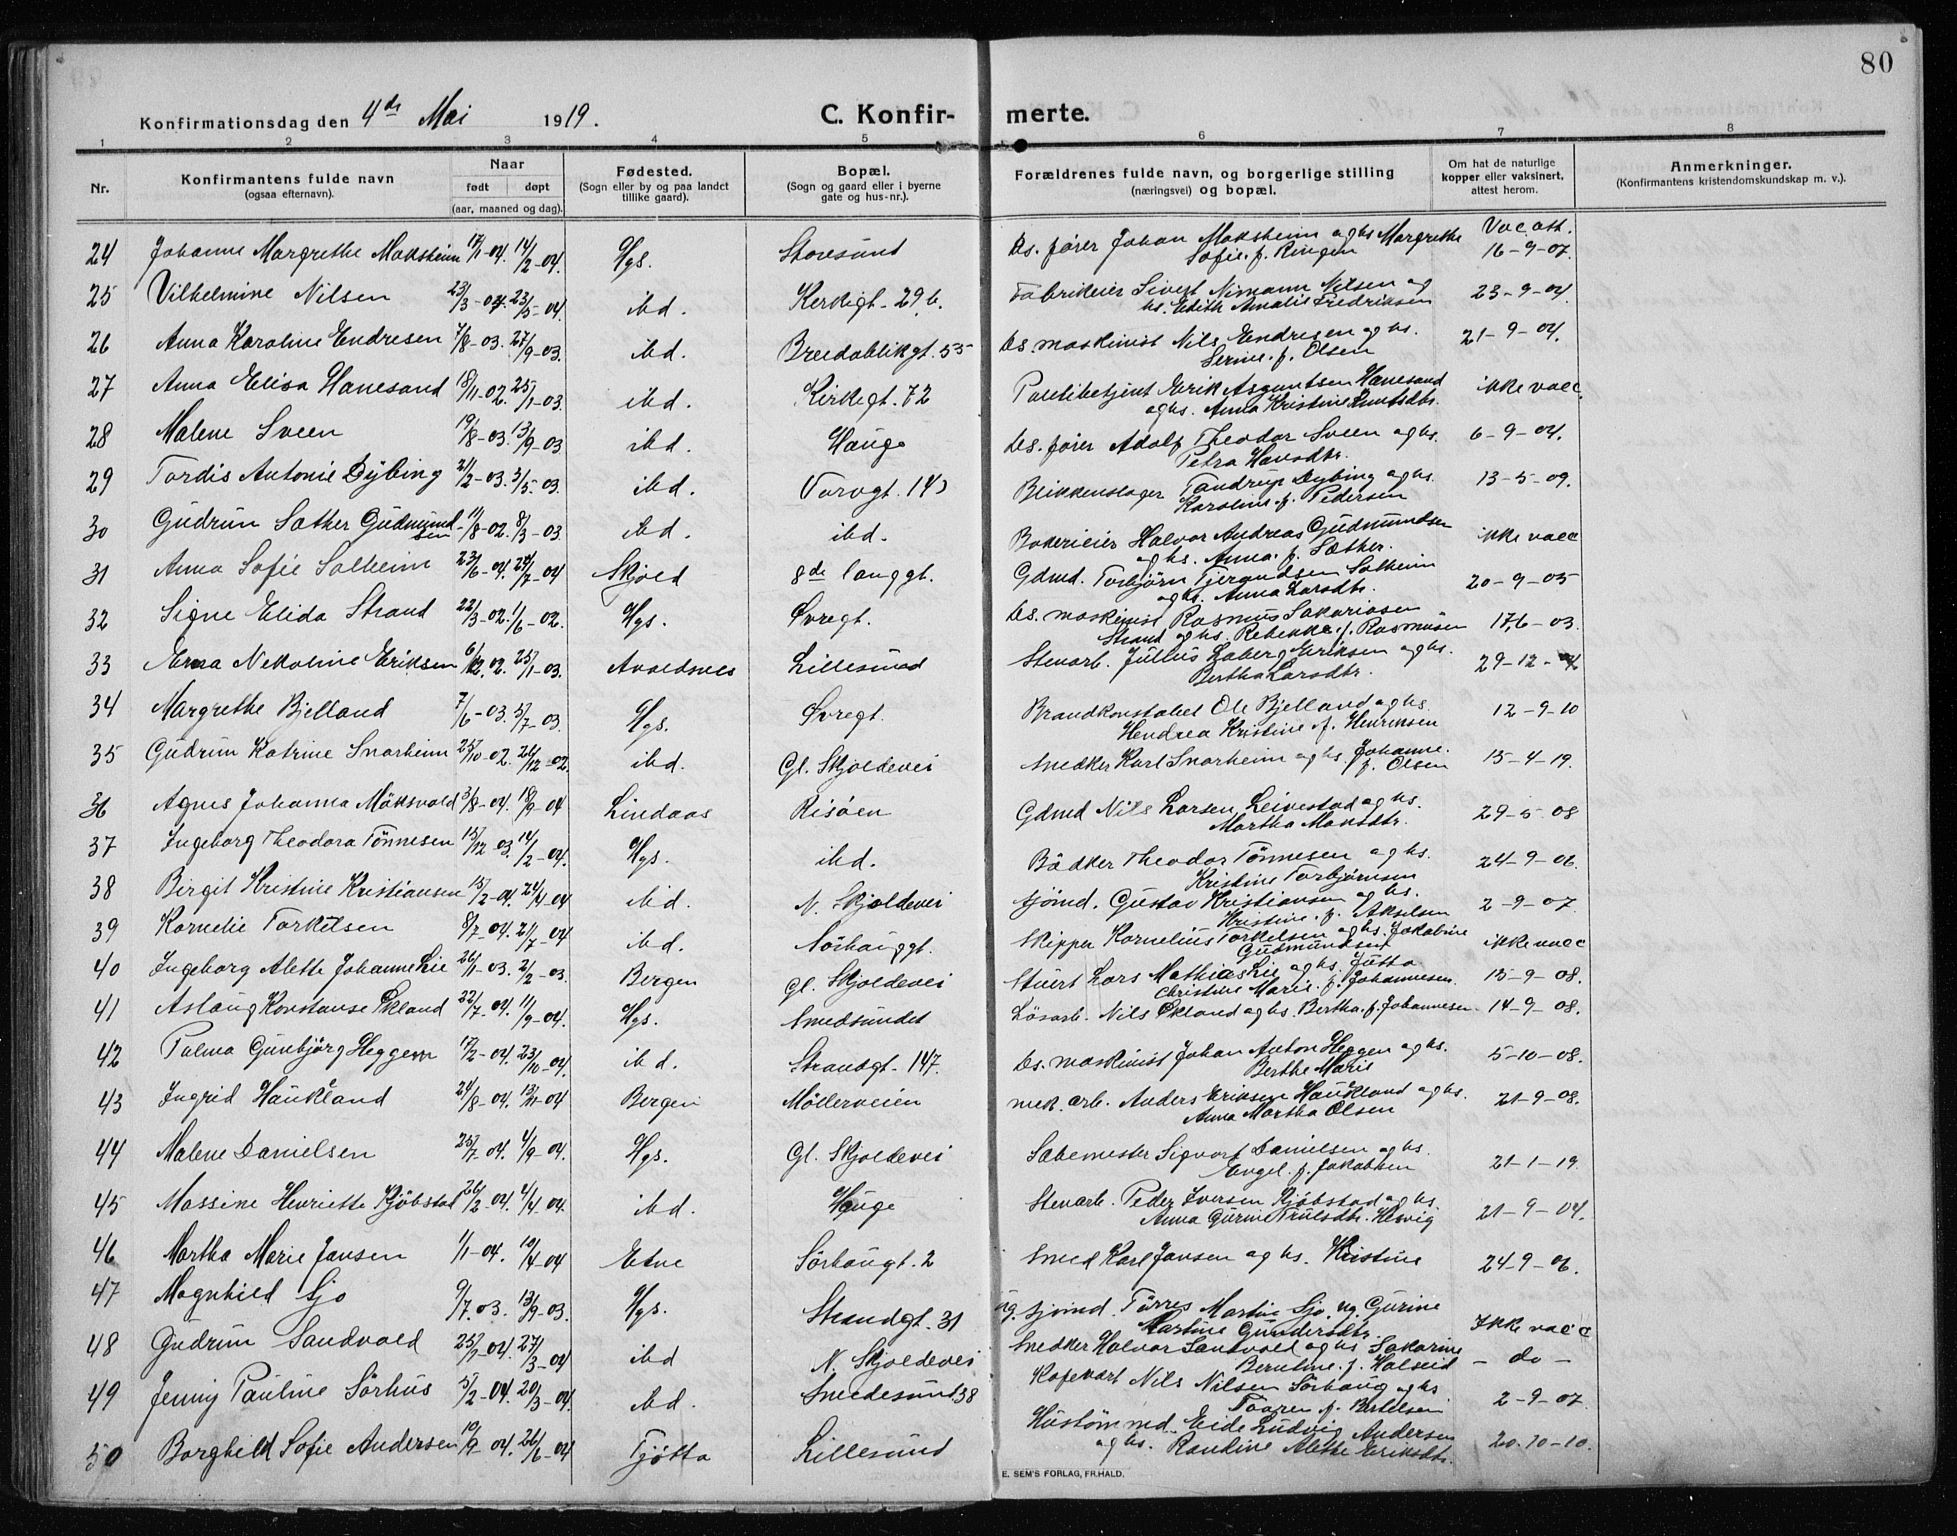 80
Konfirmationsdag den 4de Mai 1919.
C. Konfirmerte.
1 2 3 4 5 6 7 8
Nr.
Konfirmantens fulde navn
(ogsaa efternavn).
Naar
født døpt
(aar, maaned og dag).
Fødested.
(Sogn eller by og paa landet
tillike gaard).
Bopæl.
(Sogn og gaard eller i byerne
gate og hus-nr.).
Forældrenes fulde navn, og borgerlige stilling
(næringsvei) og bopæl.
Om hat de naturlige
kopper eller vaksinert,
attest herom.
Anmerkninger.
(Konfirmantens kristendomskundskap m. v.).
24 Johanne Margrethe Maksheim 17/1-04. 14/2-04. Hgs. Storesund Ds. fører Johan Maksheim og hs Margrethe Vac att.
Sofie f. Ringen 16-9-07.
25 Vilhelmine Nilsen 23/3-04 23/5-04. ibd. Kerkigt. 29 b. Fabrikeier Sivert Nimann Nilsen og 23-9-04.
hs. Edith Amalie Fredriksen
26 Anna Karoline Endresen 7/8-03. 27/9-03. ibd. Breidablikgt. 55 Ds. maskinist Nils Endresen og hs. 21-9-04.
Serine f. Olsen
27 Anna Elisa Hanesand 18/11-02. 25/1-03. ibd. Kirkegt. 72 Politibetjent Erik Asguntsen Hanesand ikke vacc.
og hs. Anna Kristine Knutsdtr.
28 Malene Sveen 19/8-03. 13/9-03 ibd. Hauge Ds. fører Adolf Theodor Sveen og hs. 6-9-04.
Petra Hansdtr.
29 Tordis Antonie Dybing 21/2-03. 3/5-03. ibd. Torvgt. 143 Blikkenslager Tandrup Dybing og hs. 13-5-09.
Karoline f. Pedersen
30 Gudrun Sæther Gudmundsen 11/8-02. 8/3-03. ibd. ibd. Bakerieier Halvor Andreas Gudmundsen ikke vacc
og hs. Anna f. Sæther.
31 Anna Sofie Solheim 23/6-04. 24/7-04 Skjold 8de langgt. Gdmd. Torbjørn Tjerandsen Solheim 20-9-05
og hs. Anna Larsdtr.
32 Signe Elida Strand 22/3-02. 1/6-02. Hgs. Øvregt. Ds. maskinist Rasmus Sakariasen
Strand og hs. Rebekka f. Rasmusen 17,6-03.
33 Erna Nikoline Eriksen 6/12.02. 25/1-03. Avaldsnes Lillesund Stenarb. Julius Laberg Eriksen og hs. 29-12-04
Bertha Larsdtr.
34 Margrethe Bjelland 7/6-03. 5/7-03 Hgs. Øvregt. Brandkonstabel Ole Bjelland og hs. 12-9-10
Hendrea Kristine f. Henriksen
35 Gudrun Katrine Snarheim 25/10-02. 26/12-02. ibd. Gl. Skjoldevei Snedker Karl Snarheim og hs. Johanne 15-4-19.
f. Olsen
36 Agnes Johanna Möksvold 3/8-04. 18/9-04 Lindaas Risöen Gdmd Nils Larsen Leivestad og hs. 29-5-08
Martha Monsdtr.
37 Ingeborg Theodora Tönnesen 15/12-03. 14/2-04. Hgs. ibd. Bödker Theodor Tönnesen og hs. 24-9-06.
Kristine Torbjørnsen
38 Birgit Kristine Kristiansen 15/2-04. 24/4-04 ibd. N. Skjoldevei Sjömd. Gustav Kristiansen og hs. 2-9-07.
Kristine f. Akselsen
39 Kornelie Torkelsen 8/7-04. 21/7-04 ibd. Sörhauggt. Skipper Kornelius Torkelsen og hs. Jakobine ikke vacc
Gudmundsen
40 Ingeborg Alette Johanne Lie 26/1-03. 2/2-03. Bergen Gl. Skjoldevei Stuert Lars Mathias Lie og hs. Jutta 15-9-08.
Christine Marie f. Johannesen.
41 Aslaug Konstanse Økland 22/7-04. 11/9-04. Hgs. Smedsundet Lösarb. Nils Økland og hs. Bertha f. Johannesen. 14-9-08.
42 Palma Gunbjörg Heggen 17/2-04. 23/10-04. ibd. Strandgt. 147. Ds. maskinist Johan Anton Heggen og hs. 5-10-08.
Berthe Marie
43 Ingrid Haukland 24/8-04. 13/11-04 Bergen Möllerveien mek. arb. Anders Eriksen Haukland og hs. 21-9-08.
Anna Martha Olsen
44 Malene Danielsen 25/7-04. 4/9-04. Hgs. Gl. Skjoldevei Sæbemester Sigvart Danielsen og hs. 21-1-19.
Engel f. Jakobsen
45 Massine Henriette Kjöbstad 26/2-04. 4/4-04. ibd. Hauge Stenarb. Peder Iversen Kjöbstad og hs. 21-9-04.
Anna Gurine Trulsdtr. Helvig
46 Martha Marie Jansen 1/1-04. 10/4-04 Etne Sörhaugt. 2 Smed Karl Jansen og hs. Kristine 24-9-06.
47 Magnhild Sjo 9/7.03. 13/9-03. Hgs. Strandgt. 31 ug. sjömd. Törres Martin Sjo, ug. Gurine Ikke vacc
Martine Gundersdtr.
48 Gudrun Sandvold 25/1-04. 27/3-04 ibd N. Skjoldevei Snedker Halvor Sandvold og hs Sakarine - do -
Berntine f. Halseid
49 Jenny Pauline Sörhus 5/2-04. 20/3-04. ibd. Smedesund. 38 Kafevært Nils Nilsen Sörhaug og hs 2-9-07.
Taaren f. Bertelsen
50 Borghild Sofie Andersen 10/9 04. 26/6-04 Tjøtta Lillesund Hustömmd. Eide Ludvig Andersen 20.10-10.
og hs. Randine Alette Eriksdtr.
E. SEM'S FORLAG, FR.HALD.